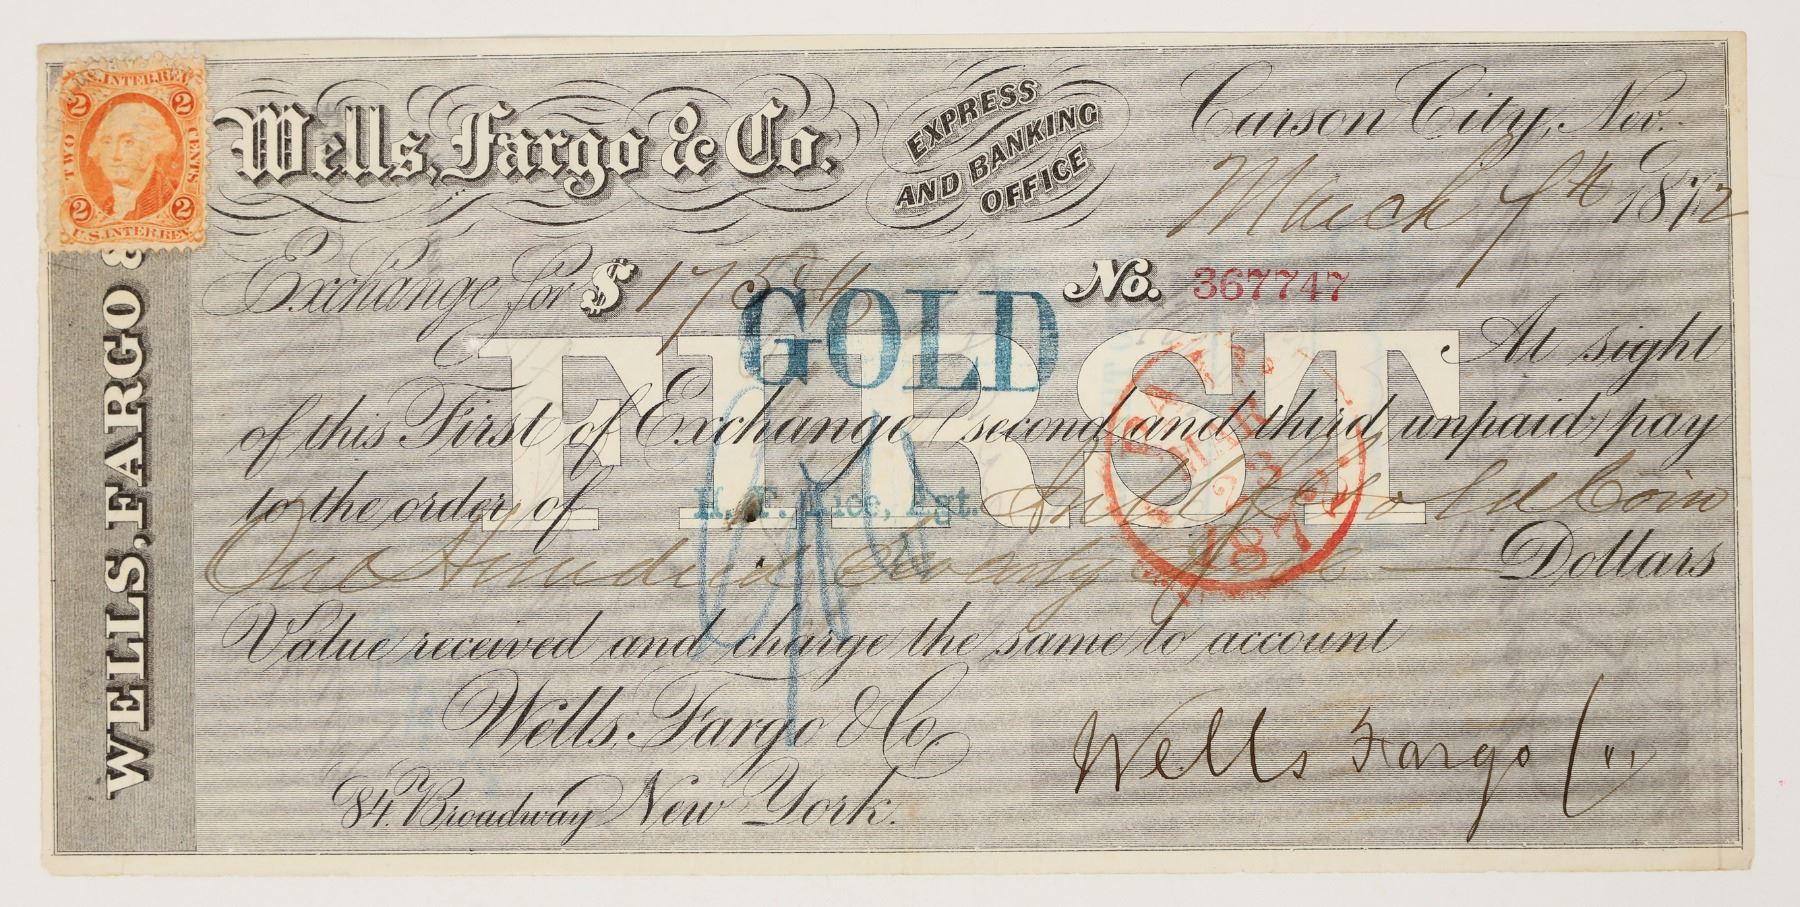 U.S. INTER. REV.
2 2
TWO CENTS
2 2
U.S. INTER. REV.
WELLS, FARGO &
Wells, Fargo & Co.
EXPRESS
AND BANKING
OFFICE
Carson City, Nev.
March 1872
Exchange for $ 175
GOLD
No. 367747
FIRST
At sight
of this First of Exchange (second and third unpaid) pay
to the order of H. F. Rice, Agt. Gold Coin
One Hundred Seventy Dollars
MAR
1872
Value received and charge the same to account
Wells, Fargo & Co.
84. Broadway New York.
Wells Fargo